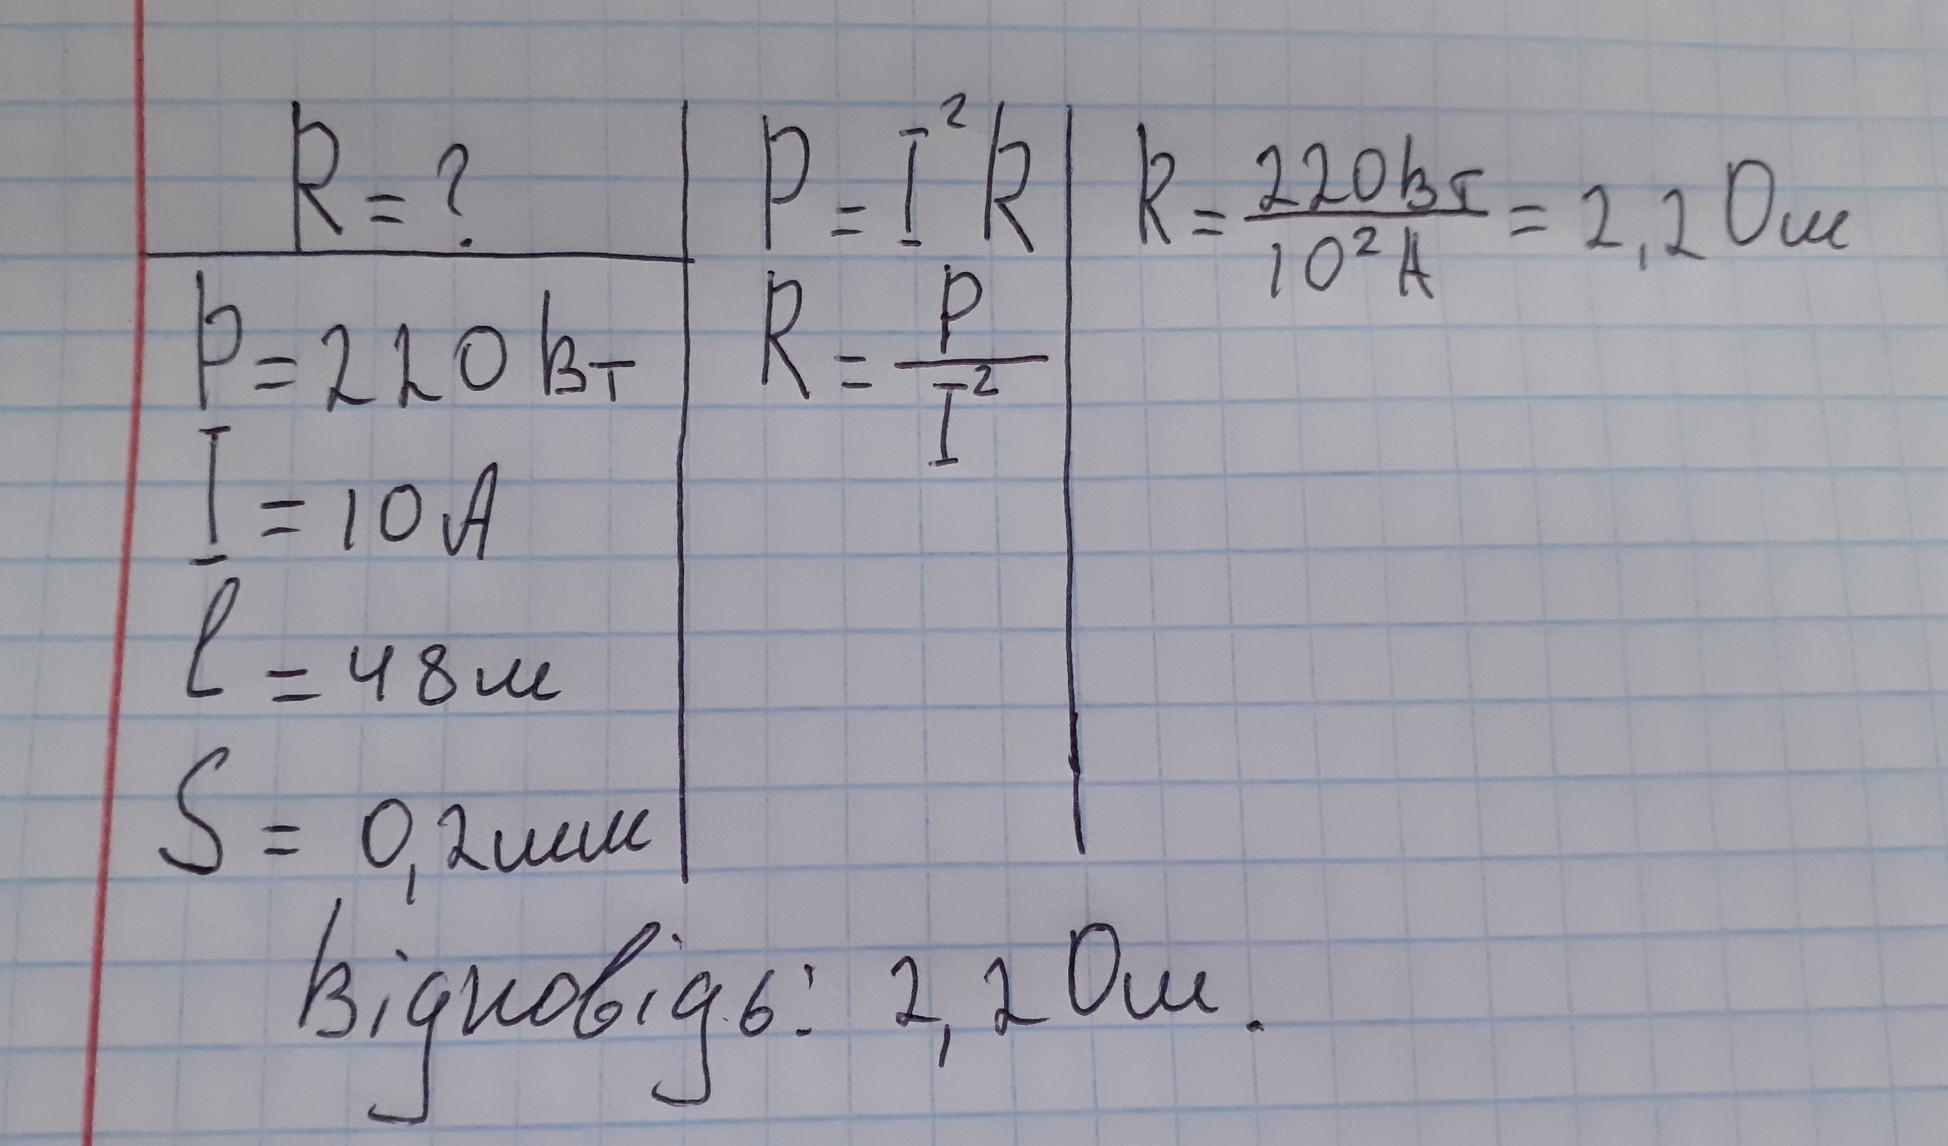 R = ?
P = 220 Вт
I = 10 А
l = 48 м
S = 0,2 мм
P = I²R
R = P/I²
R = 220 Вт / 10² А = 2,2 Ом
Відповідь: 2,2 Ом.